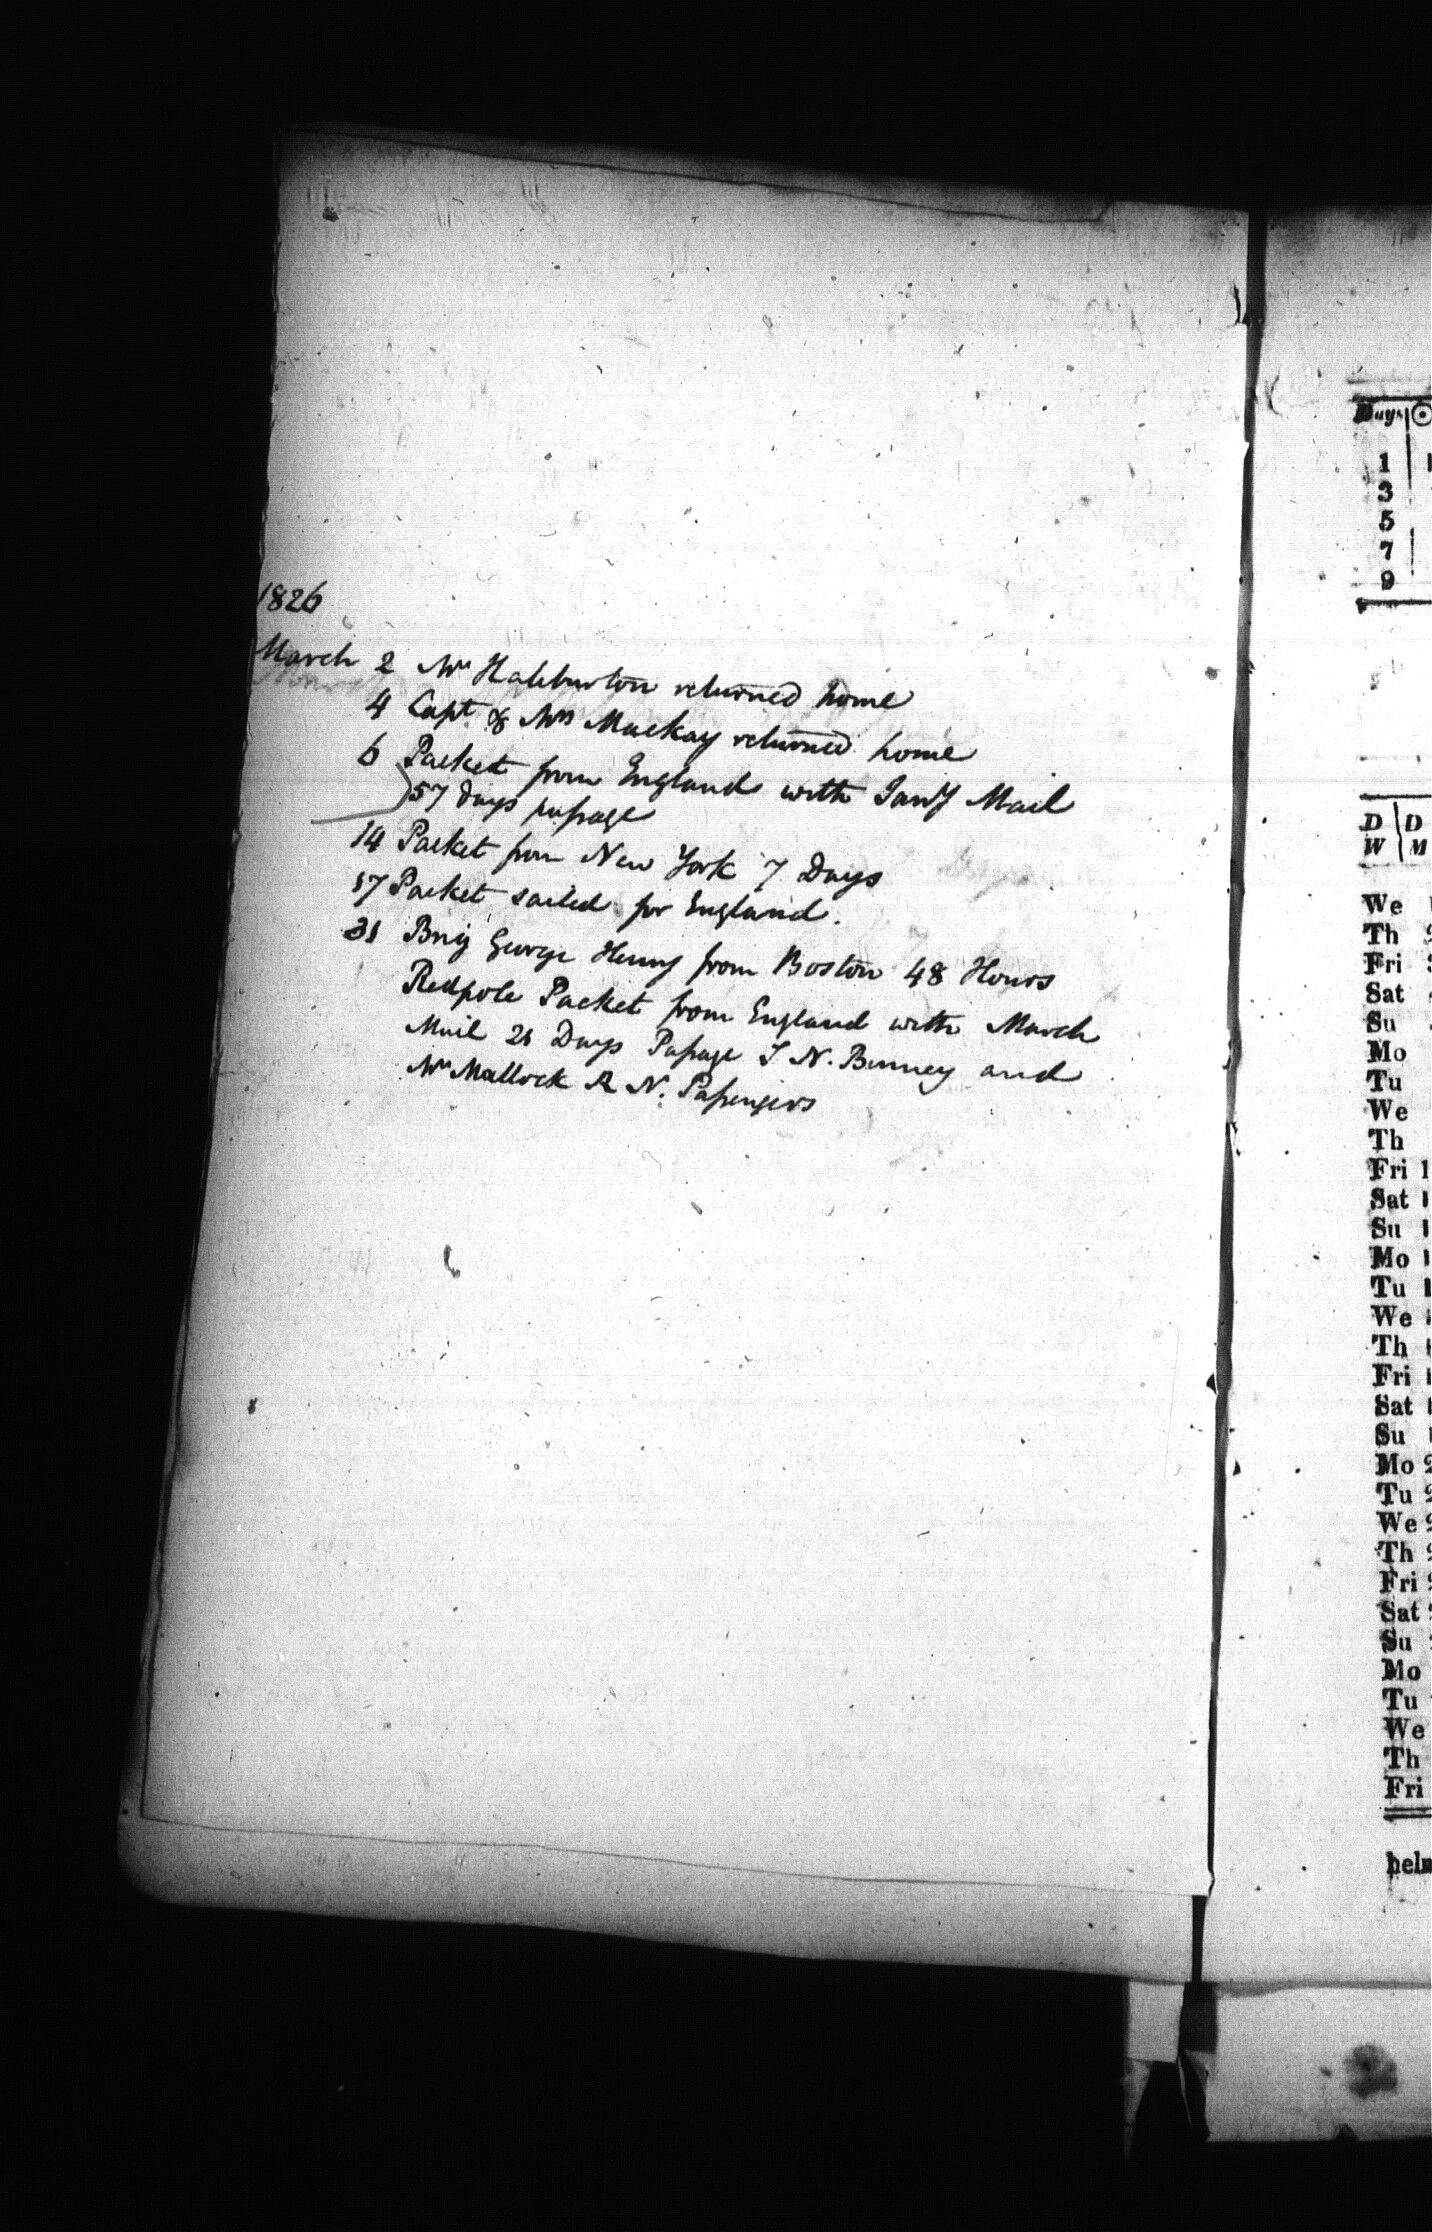 1826
March 2 Mr Haliburton returned home
4 Capt & Mrs Mackay returned home
6 Packet from England with Jany Mail
57 days passage
14 Packet from New York 7 Days
17 Packet sailed for England.
31 Brig George Henry from Boston 48 Hours
Redpole Packet from England with March
Mail 26 Days Passage J N. Binney and
Mr Mallock R N. Passengers
Days
1
3
5
7
9
D D
W M
We
Th
Fri
Sat
Su
Mo
Tu
We
Th
Fri 1
Sat 1
Su 1
Mo 1
Tu 1
We
Th
Fri
Sat
Su
Mo 2
Tu 2
We 2
Th 2
Fri 2
Sat
Su
Mo
Tu
We
Th
Fri